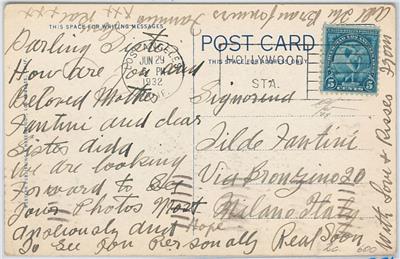 THIS SPACE FOR WRITING MESSAGES
POST CARD
THIS SPACE FOR
LOS ANGELES
JUN 29
PM
1932
HOLLYWOOD
STA.
5 CENTS 5
Darling Sister
How are you and
Beloved Mother
Fantini and dear
Sister
We are looking
Forward to See
Your Photos Most
and Hope
To See You Personally Real Soon
Signorina
Tilde Fantini
Via Bronzino 20
Milano Italy
With Love & Kisses From
All
xxx
600